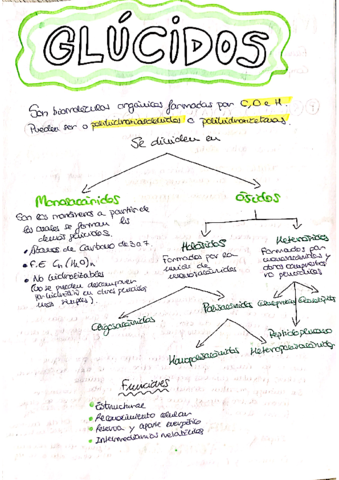 GLÚCIDOS
Son biomoléculas orgánicas formadas por C, O e H.
Pueden ser o polihidroxialdehídos o polihidroxicetonas.
Se dividen en
Monosacáridos
Son los monómeros a partir de
los cuales se forman los
demás glúcidos.
• Átomos de Carbono de 3 a 7.
• F.E Cn (H2O)n
• No hidrolizables
(No se pueden descomponer
por hidrólisis en otros glúcidos
más simples).
Ósidos
Holósidos
Formados por la
unión de
monosacáridos
Heterósidos
Formados por
monosacáridos y
otros compuestos
no glucídicos
Oligosacáridos
Polisacáridos
Homopolisacáridos
Heteropolisacáridos
Peptidoglucano
Funciones
• Estructural
• Reconocimiento celular
• Reserva y aporte energético
• Intermediarios metabólicos